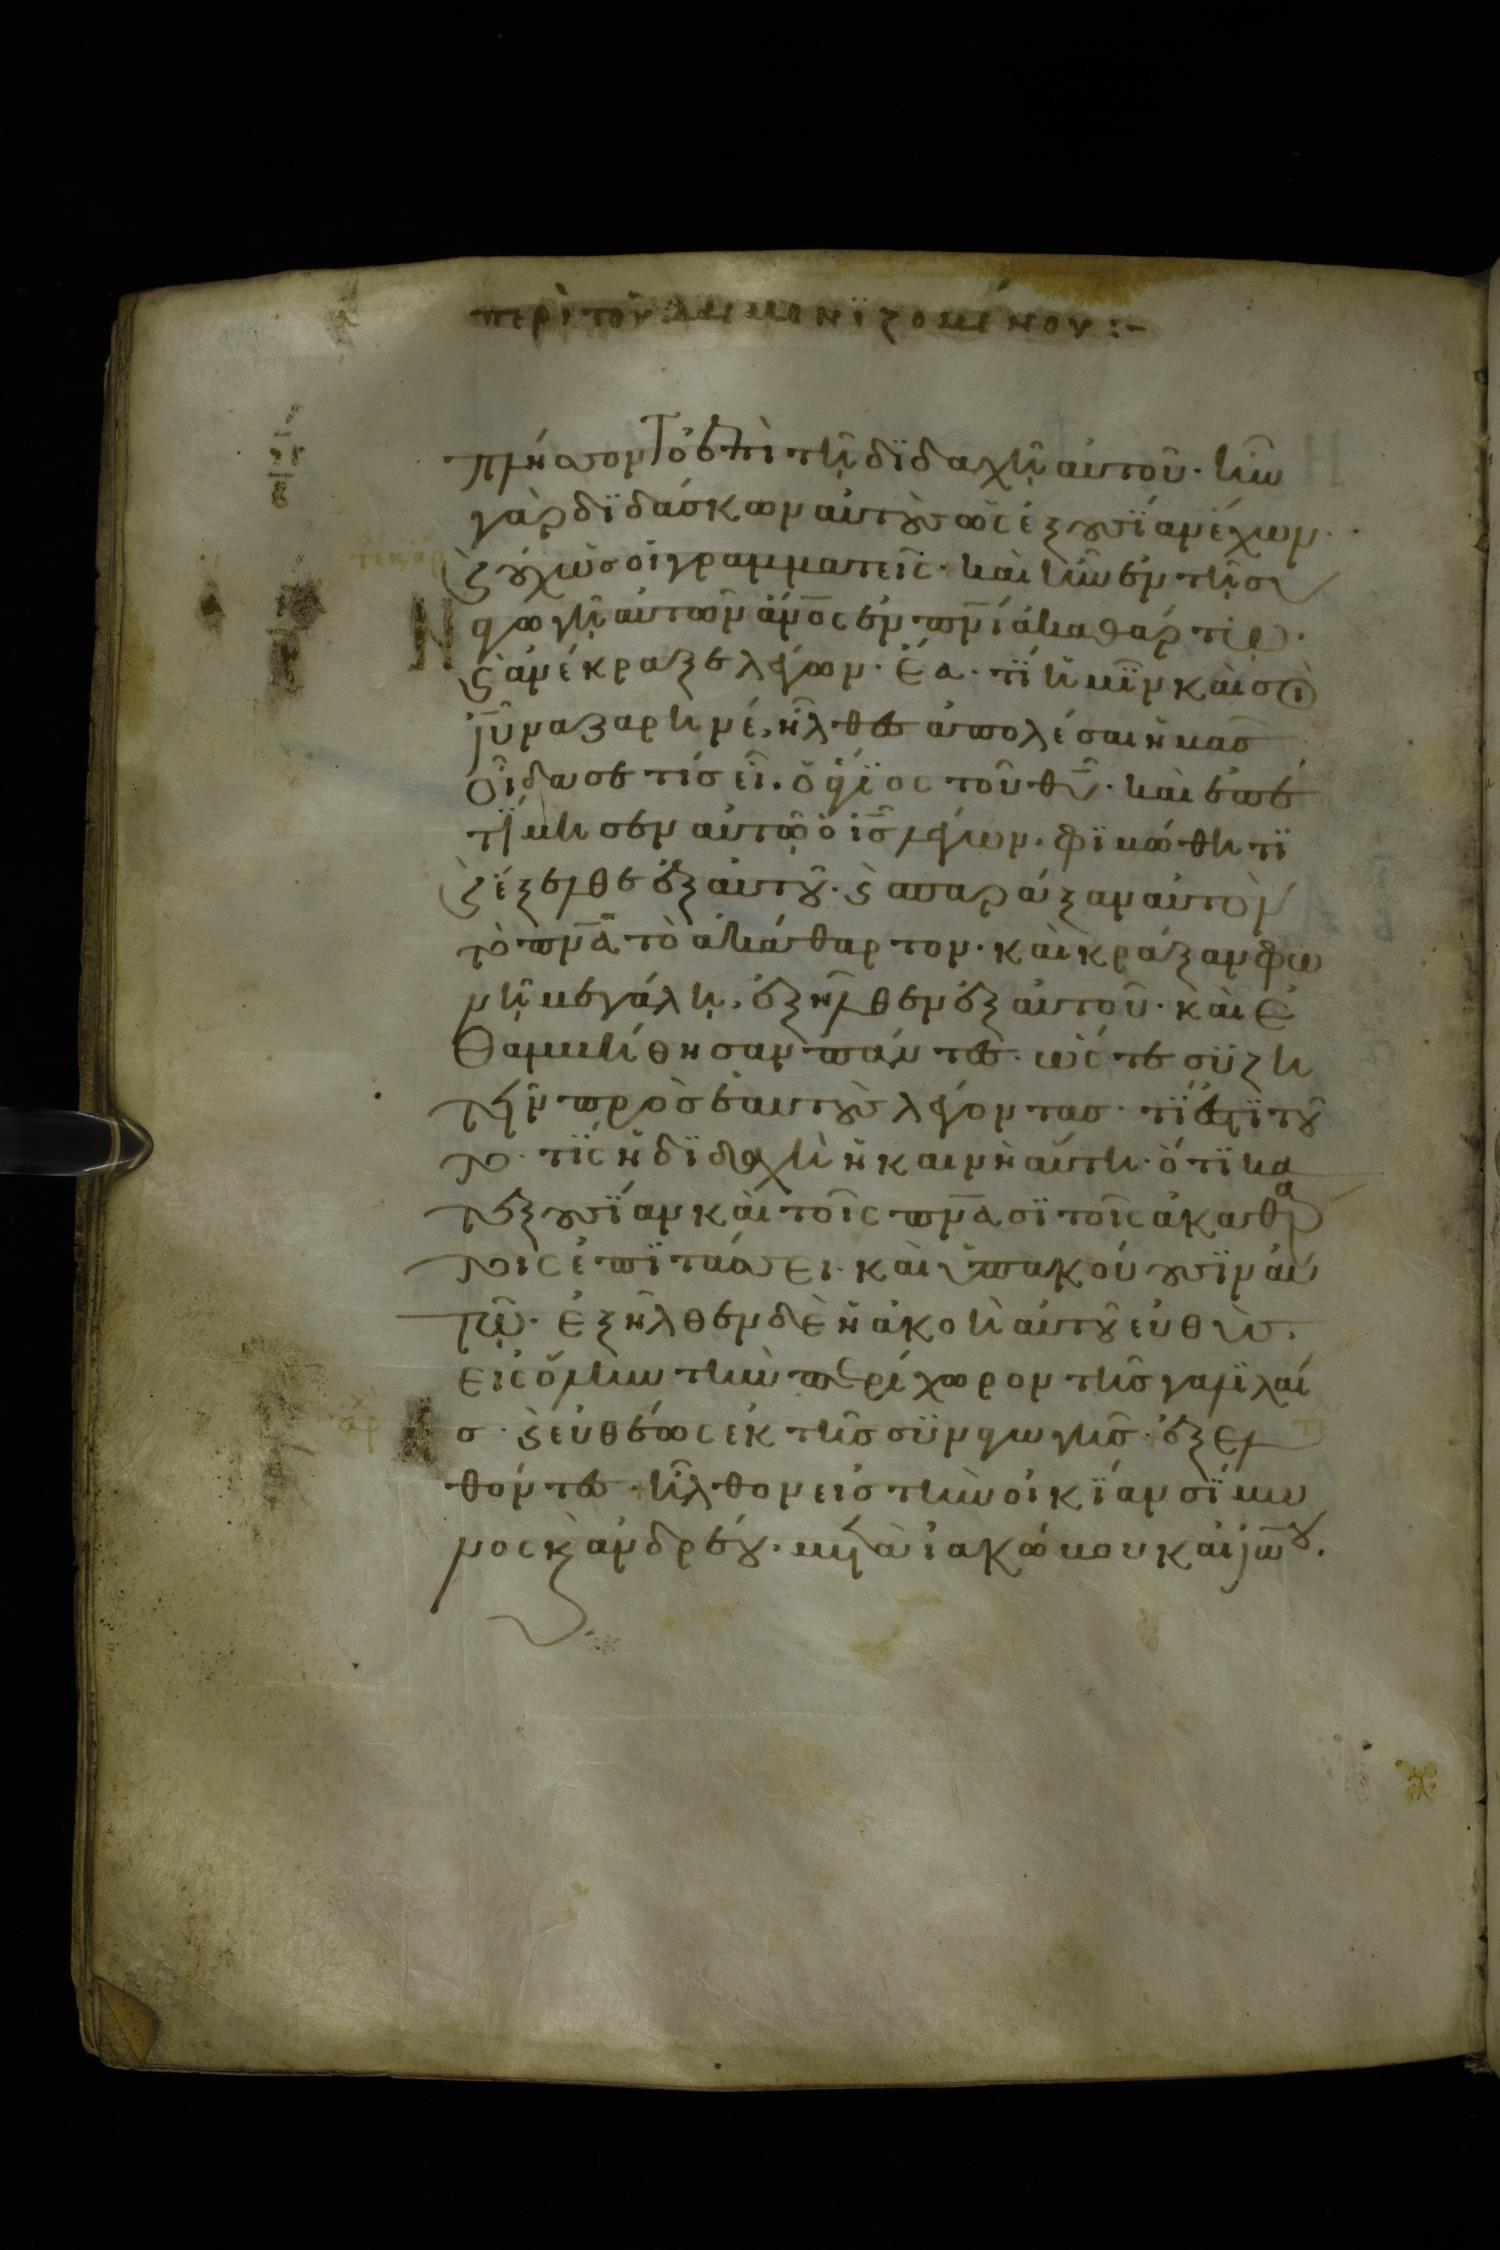 περὶ τοῦ δαιμονϊζομένου :-
πλήσσοντο ἐπὶ τῆ δϊδαχῆ αὐτοῦ· ἦν
γὰρ δϊδάσκων αὐτοὺς ὡς ἐξουσΐαν ἔχων·
καὶ οὐχ ὡς οἱ γραμματεῖς· καὶ ἦν ἐν τῆ συ
ναγωγῆ αὐτῶν ἄνος ἐν πνι ἀκαθάρτω·
καὶ ἀνέκραξε λέγων· ἔα· τΐ ἡμῖν καὶ σοὶ
ιυ ναζαρηνέ, ἦλθες ἀπολέσαι ἡμᾶς
οἶδα σε τίς εἶ. ὁ ἅγϊος τοῦ θυ· καὶ ἐπε
τΐμησεν αὐτῶ ὁ ις λέγων· φϊμώθητϊ
καὶ ἔξελθε ἐξ αὐτοῦ· καὶ σπαράξαν αὐτὸν
τὸ πνα τὸ ἀκάθαρτον· καὶ κράξαν φω
νῆ μεγάλη, ἐξῆλθεν ἐξ αὐτοῦ· καὶ ἐ
θαμβήθησαν πάντες· ὥς τε σϋζη
τεῖν πρὸς ἑαυτοὺς λέγοντας· τΐ ἐστϊ τοῦ
το· τΐς ἡ δϊδαχὴ ἡ καινὴ αὕτη· ὅτϊ κα
τ ἐξουσΐαν καὶ τοῖς πνασϊ τοῖς ἀκαθάρ
τοις ἐπϊτάσσει· καὶ ὑπακούουσϊν αὐ
τῶ· ἐξῆλθεν δὲ ἡ ἀκοὴ αὐτοῦ εὐθὺς·
εἰς ὅλην τὴν περίχωρον τῆς γαλϊλαί
ας· καὶ εὐθέως ἐκ τῆς σϋναγωγῆς· ἐξελ
θόντες· ἦλθον εἰς τὴν οἰκΐαν σΐμω
νος καὶ ἀνδρέου· μετὰ ἰακώβου καὶ ἰωου.